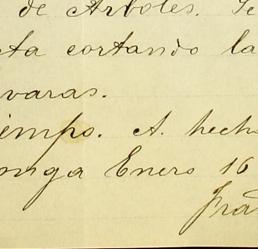 de Arboles. Se
ta cortando la
varas.
iempo. A. hech
nga Enero 16
Fra